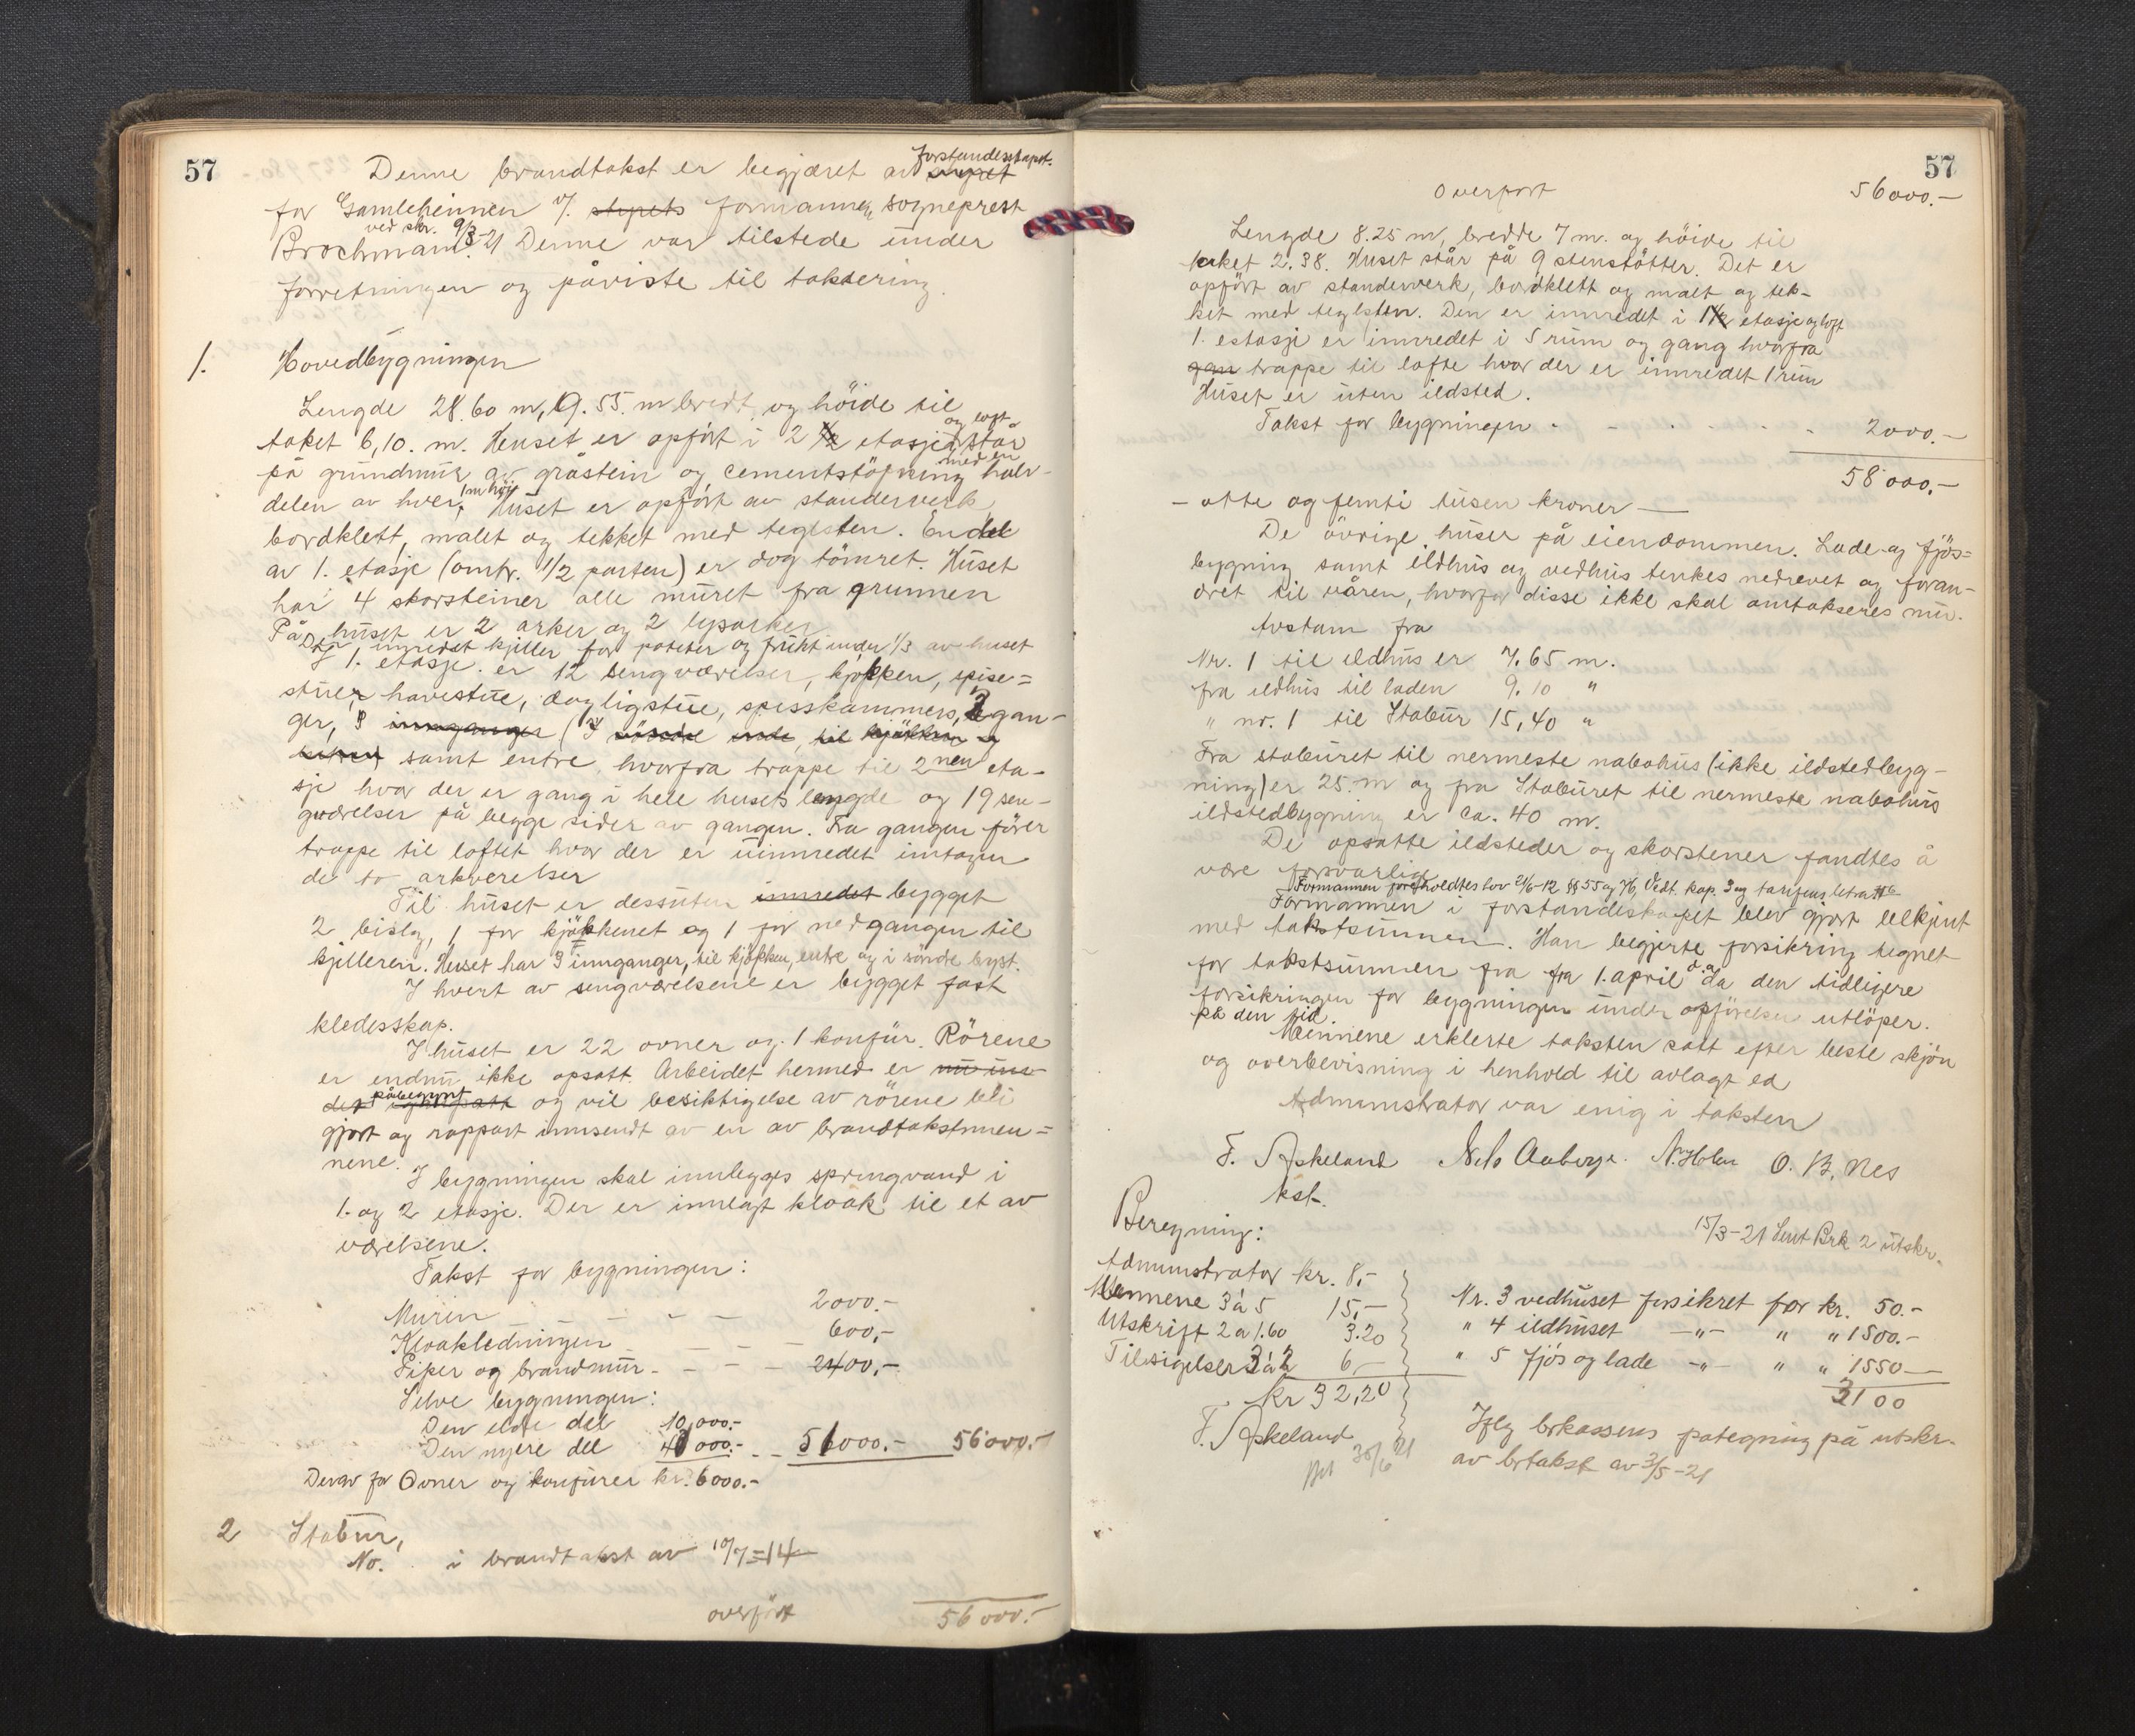 57
Denne brandtakst er begjæret av styret forstandesskapet.
for Gamleheimen v/. styrets formannen, sogneprest
Brochmann. ved skr. 9/3-21 Denne var tilstede under
forretningen og påviste til taksering.
1. Hovedbygningen
Lengde 28.60 m, 9.55. m bredt og höide til
taket 6,10. m. Huset er opfört i 2 1/2 etasjer, og loft står
på grundmur av gråstein og cementstöpning med en halv-
delen av hver, 1 m höi. Huset er opfört av standerverk
bordklett, malet og tekket med teglsten. En del
av 1. etasje (omtr. 1/2 parten) er dog tömret. Huset
har 4 skorsteiner alle muret fra grunnen
På huset er 2 arker og 2 lysarker
Der innredet kjiller for poteter og frukt under 1/3 av huset
I 1. etasje er 12 sengværelser, kjökken, spise=
stuer, havestue, dagligstue, spisskammers, 2 gan-
ger, 3 innganger (I söndre ende, til kjökken og
entre) samt entre hvorfra trappe til 2nen eta-
sje hvor der er gang i hele husets lengde og 19 sen-
gværelser på begge sider av gangen. Fra gangen förer
trappe til loftet hvor der er uinnredet inntagen
de to arkverelser
Til huset er dessuten innredet bygget
2 bislag, 1 for kjökkenet og 1 for nedgangen til
kjilleren. Huset har 3 innganger, til kjökken, entre og i söndre byst.
I hvert av sengværelsene er bygget fast
kledesskap.
I huset er 22 ovner og 1 konfur. Rörene
er endnu ikke opsatt. Arbeidet hermed er nu un-
der påbegynt og vil besiktigelse av rörene bli
gjort og rapport innsendt av en av brandtakstmen=
nene.
I bygningen skal innlegges springvand i
1. og 2 etasje. Der er innlagt kloak til et av
værelsene.
Takst for bygningen:
Muren - - - 2000.-
Kloakledningen - - - 600,-
Piper og brandmur - - - 2400,-
Selve bygningen:
Den eldre del 10,000.-
Den nyere del 41000.- - - 51000.- 56000.-
Derav for Ovner og konfurer kr. 6000.-
2 Stabur,
No. i brandtakst av 10/7=14
overfört 56000.-
57
Overfört 56000.-
Lengde 8.25 m, bredde 7 m. og höide til
taket 2.38. Huset står på 9 stenstötter. Det er
opfört av standerverk, bordklett og malt og tek-
ket med teglsten. Den er innredet i 1 1/2 etasje og loft
1. etasje er innredet i 5 rum og gang hvorfra
gan trappe til lofte hvor der er innredet 1 rum
Huset er uten ildsted.
Takst for bygningen - - - 2000.-
58000.-
- otte og femti tusen kroner -
De övrige huser på eiendommen. Lade- og fjös=
bygning samt ildhus og vedhus tenkes nedrevet og foran-
dret til våren, hvorfor disse ikke skal omtakseres nu.
Avstann fra
Nr. 1 til ildhus er 7.65 m.
fra ildhus til laden 9.10 "
" nr. 1 til Stabur 15,40 "
Fra staburet til nermeste nabohus (ikke ildstedbyg-
ning) er 25 m og fra Staburet til nermeste nabohus
ildstedbygning er ca. 40 m.
De opsatte ildsteder og skorstener fandtes å
være forsvarlige
Formannen foreholdtes lov 21/6-12 §§ 55 og 76, Vedt. kap. 3 og tarifens letra
Formannen i forstandeskapet blev gjort bekjent
med takstsummen. Han begjerte forsikring tegnet
for takstsummen fra fra 1. april d.a. da den tidligere
forsikringen for bygningen under opförelse utlöper.
på den tid
Mennene erklerte taksten satt efter beste skjön
og overbevisning i henhold til avlagt ed
Administrator var enig i taksten
F. Askeland Nils Aaberge. N. Holen O. B. Nes
kst.
15/3-21 Sent Brk. 2 utskr.
Beregning:
Administrator kr. 8,-
Mennene 3 à 5 15,-
Utskrift 2 a 1.60 3.20
Tilsigelser 3 à 2 6,-
kr 32,20
F. Askeland
Nr. 3 vedhuset forsikret for kr. 50.-
" 4 ildhuset -"- " " 1500.-
" 5 fjös og lade -"- " " 1550-
3100
Iflg brkassens pategning på utskr.
av brtakst av 3/5-21